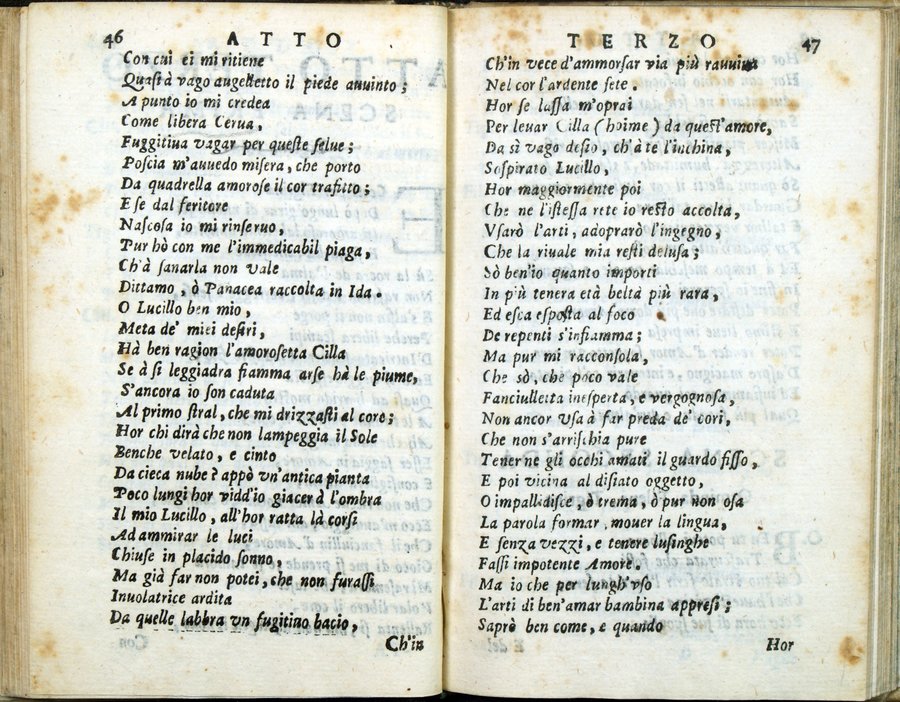 46 ATTO
Con cui ei mi ritiene
Quasi à vago augelletto il piede auuinto;
A punto io mi credea
Come libera Cerua,
Fuggitiua vagar per queste selue;
Poscia m'auuedo misera, che porto
Da quadrella amorose il cor trafitto;
E se dal feritore
Nascosa io mi rinseruo,
Pur hò con me l'immedicabil piaga,
Ch'à sanarla non vale
Dittamo, ò Panacea raccolta in Ida.
O Lucillo ben mio,
Meta de' miei desiri,
Hà ben ragion l'amorosetta Cilla
Se à sì leggiadra fiamma arse hà le piume,
S'ancora io son caduta
Al primo stral, che mi drizzasti al core;
Hor chi dirà che non lampeggia il Sole
Benche velato, e cinto
Da cieca nube? appò vn'antica pianta
Poco lungi hor vidd'io giacer à l'ombra
Il mio Lucillo, all'hor ratta là corsi
Ad ammirar le luci
Chiuse in placido sonno,
Ma già far non potei, che non furassi
Inuolatrice ardita
Da quelle labbra vn fugitino bacio,
Ch'in
TERZO 47
Ch'in vece d'ammorsar via più rauuiua
Nel cor l'ardente sete.
Hor se lassa m'oprai
Per leuar Cilla (hoime) da quest'amore,
Da sì vago desio, ch'à te l'inchina,
Sospirato Lucillo,
Hor maggiormente poi
Che ne l'istessa rete io resto accolta,
Vsarò l'arti, adoprarò l'ingegno,
Che la riuale mia resti delusa;
Sò ben'io quanto importi
In più tenera età beltà più rara,
Ed esca esposta al foco
De repenti s'infiamma;
Ma pur mi racconsola,
Che sò, che poco vale
Fanciulletta inesperta, e vergognosa,
Non ancor vsa à far preda de' cori,
Che non s'arrischia pure
Tener ne gli occhi amati il guardo fisso,
E poi vicina al disiato oggetto,
O impallidisce, ò trema, ò pur non osa
La parola formar, mouer la lingua,
E senza vezzi, e tenere lusinghe
Fassi impotente Amore.
Ma io che per lungh'vso
L'arti di ben'amar bambina appresi;
Saprò ben come, e quando
Hor